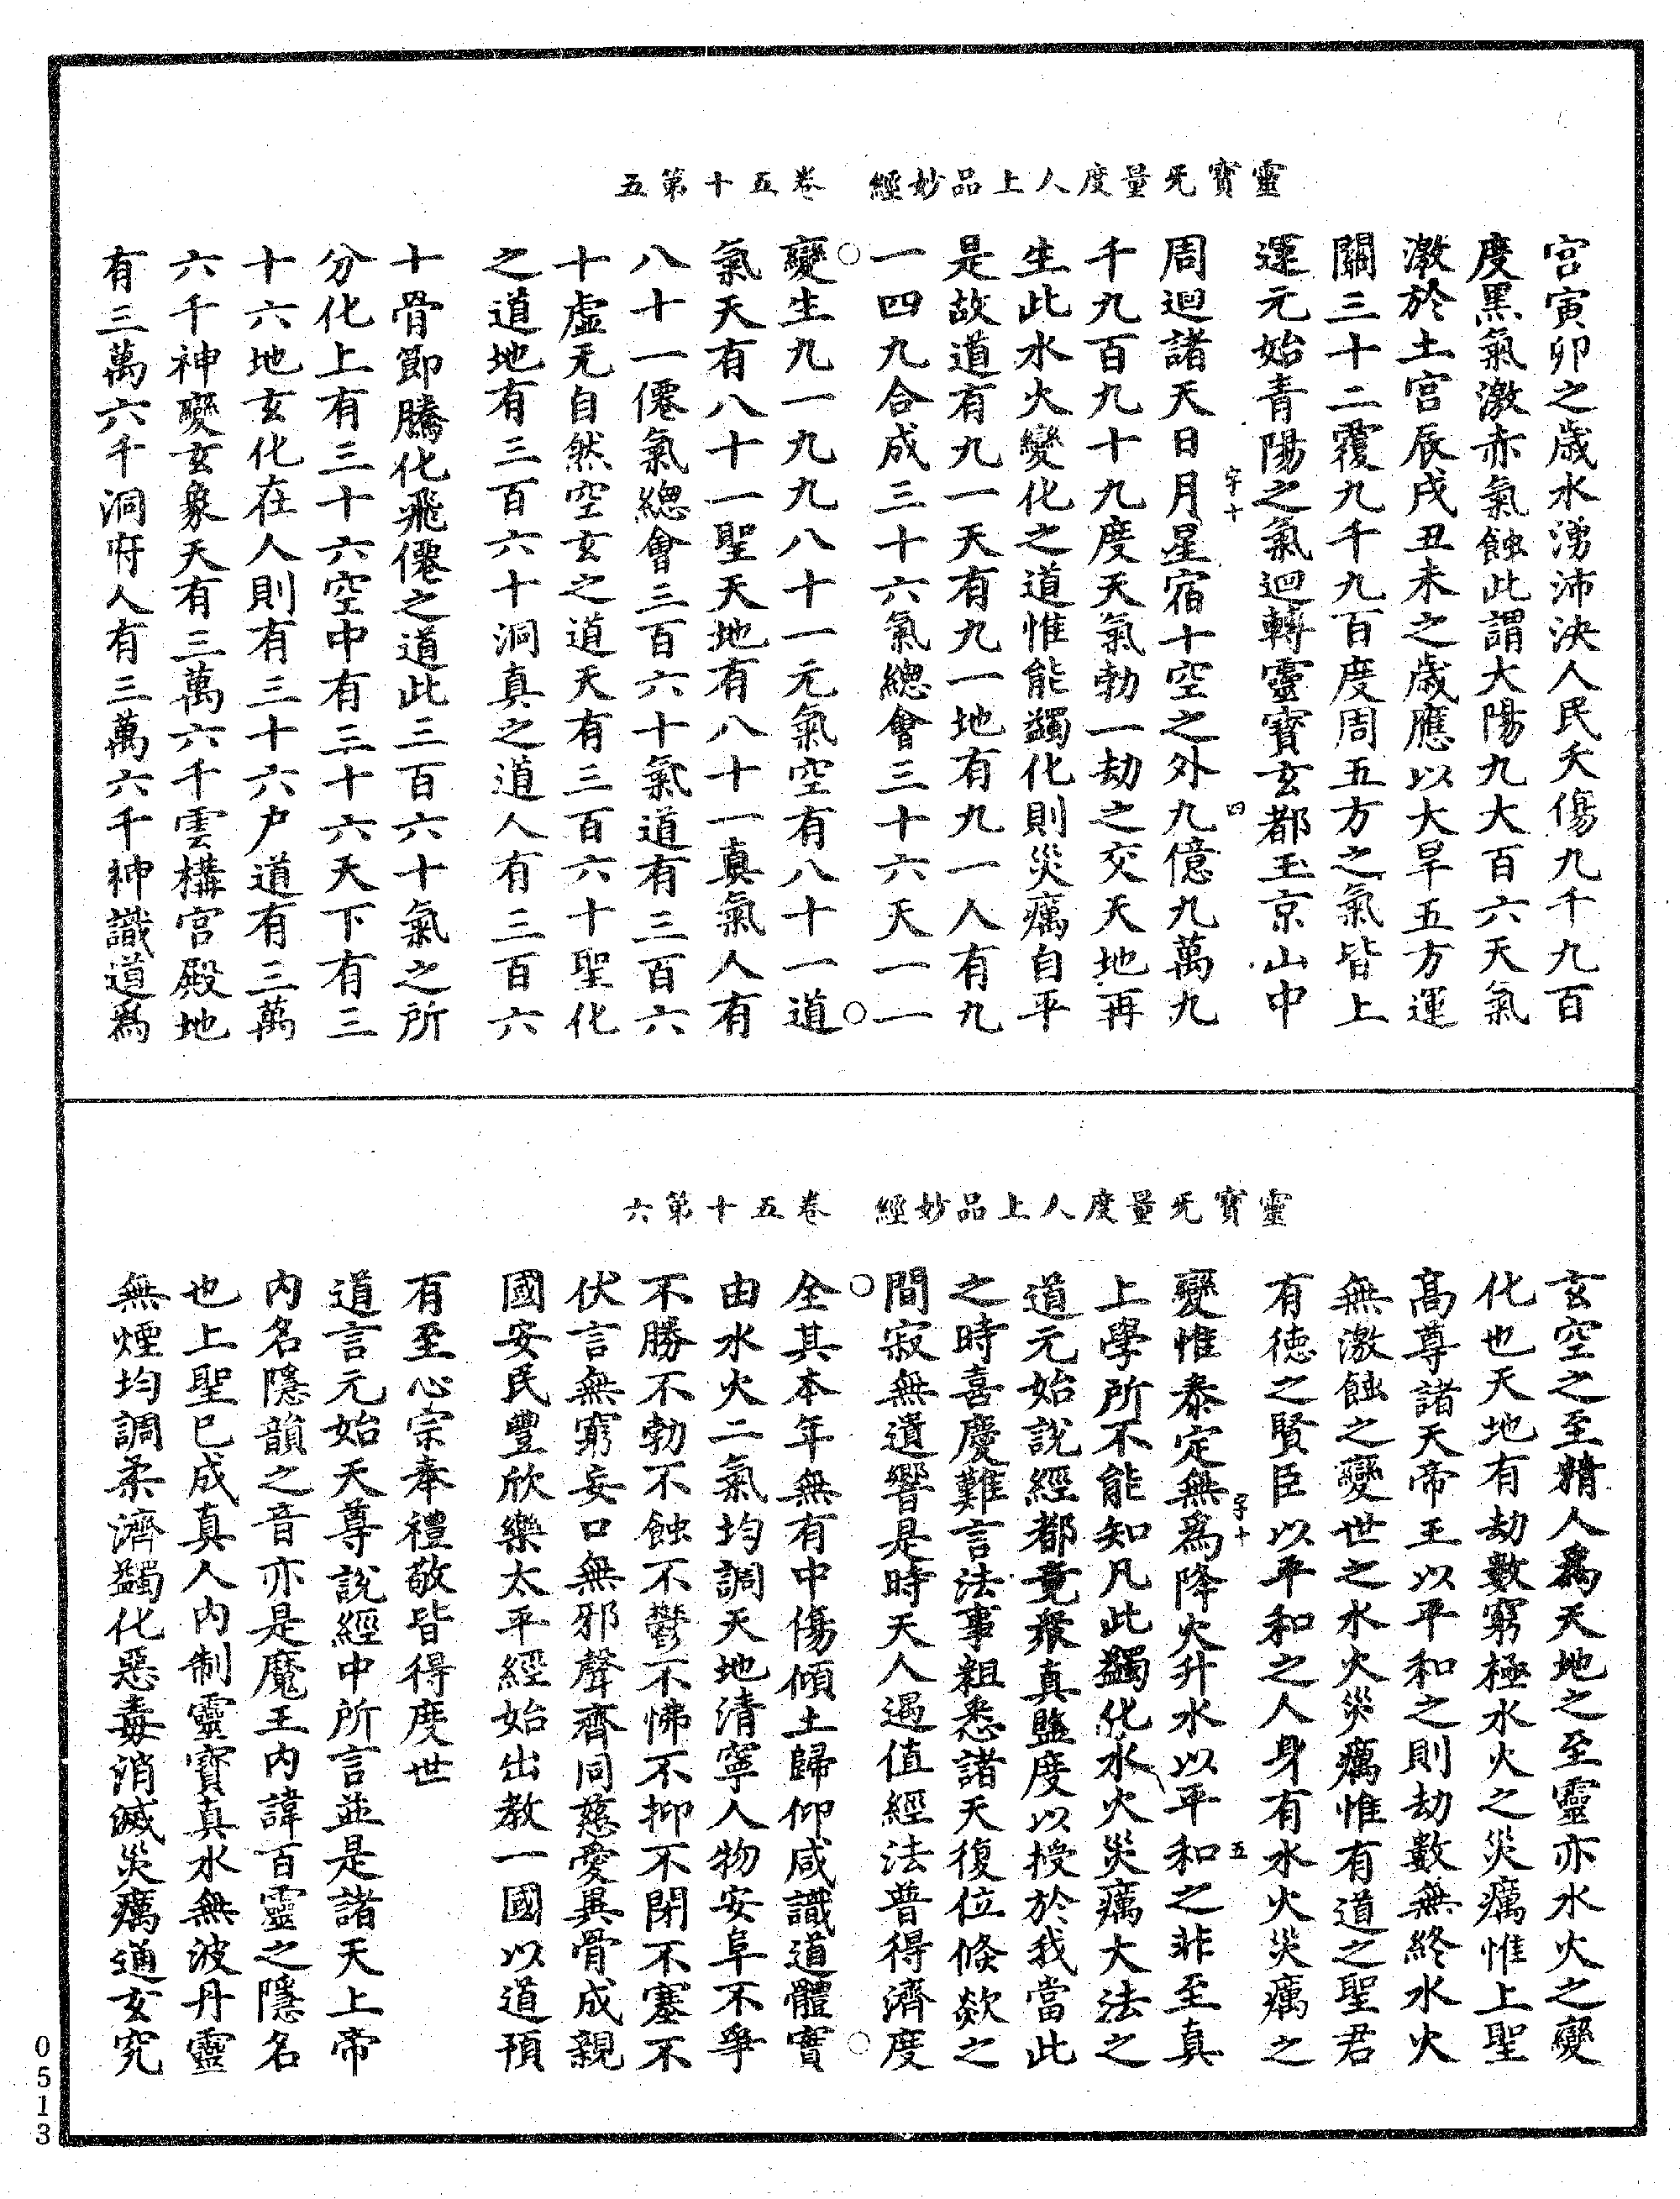 靈寶无量度人上品妙經　卷五十第五
宮寅卯之歳水湧沛決人民夭傷九千九百
度黑氣激赤氣蝕此謂大陽九大百六天氣
激於土宮辰戌丑未之歳應以大旱五方運
關三十二覆九千九百度周五方之氣皆上
運元始青陽之氣迴轉靈寶玄都玉京山中
字十　四
周迴諸天日月星宿十空之外九億九萬九
千九百九十九度天氣勃一劫之交天地再
生此水火變化之道惟能蠲化則災癘自平
是故道有九一天有九一地有九一人有九
一四九合成三十六氣總會三十六天一一
變生九一九九八十一元氣空有八十一道
氣天有八十一聖天地有八十一真氣人有
八十一僊氣總會三百六十氣道有三百六
十虛无自然空玄之道天有三百六十聖化
之道地有三百六十洞真之道人有三百六
十骨節騰化飛僊之道此三百六十氣之所
分化上有三十六空中有三十六天下有三
十六地玄化在人則有三十六户道有三萬
六千神變玄象天有三萬六千雲構宮殿地
有三萬六千洞府人有三萬六千神識道爲
靈寶无量度人上品妙經　卷五十第六
玄空之至精人爲天地之至靈亦水火之變
化也天地有劫數窮極水火之災癘惟上聖
髙尊諸天帝王以平和之則劫數無終水火
無激蝕之變世之水火災癘惟有道之聖君
有徳之賢臣以平和之人身有水火災癘之
字十　五
變惟泰定無爲降火升水以平和之非至真
上學所不能知凡此蠲化水火災癘大法之
道元始說經都竟衆真監度以授於我當此
之時喜慶難言法事粗悉諸天復位倐欻之
間寂無遺響是時天人遇值經法普得濟度
全其本年無有中傷傾土歸仰咸識道體實
由水火二氣均調天地清寧人物安阜不爭
不勝不勃不蝕不鬱不怫不抑不閉不塞不
伏言無窮妄口無邪聲齊同慈愛異骨成親
國安民豐欣樂太平經始出教一國以道預
有至心宗奉禮敬皆得度世
道言元始天尊說經中所言並是諸天上帝
内名隱韻之音亦是魔王内諱百靈之隱名
也上聖巳成真人内制靈寶真水無波丹靈
無煙均調柔濟蠲化惡毒消滅災癘通玄究
0513